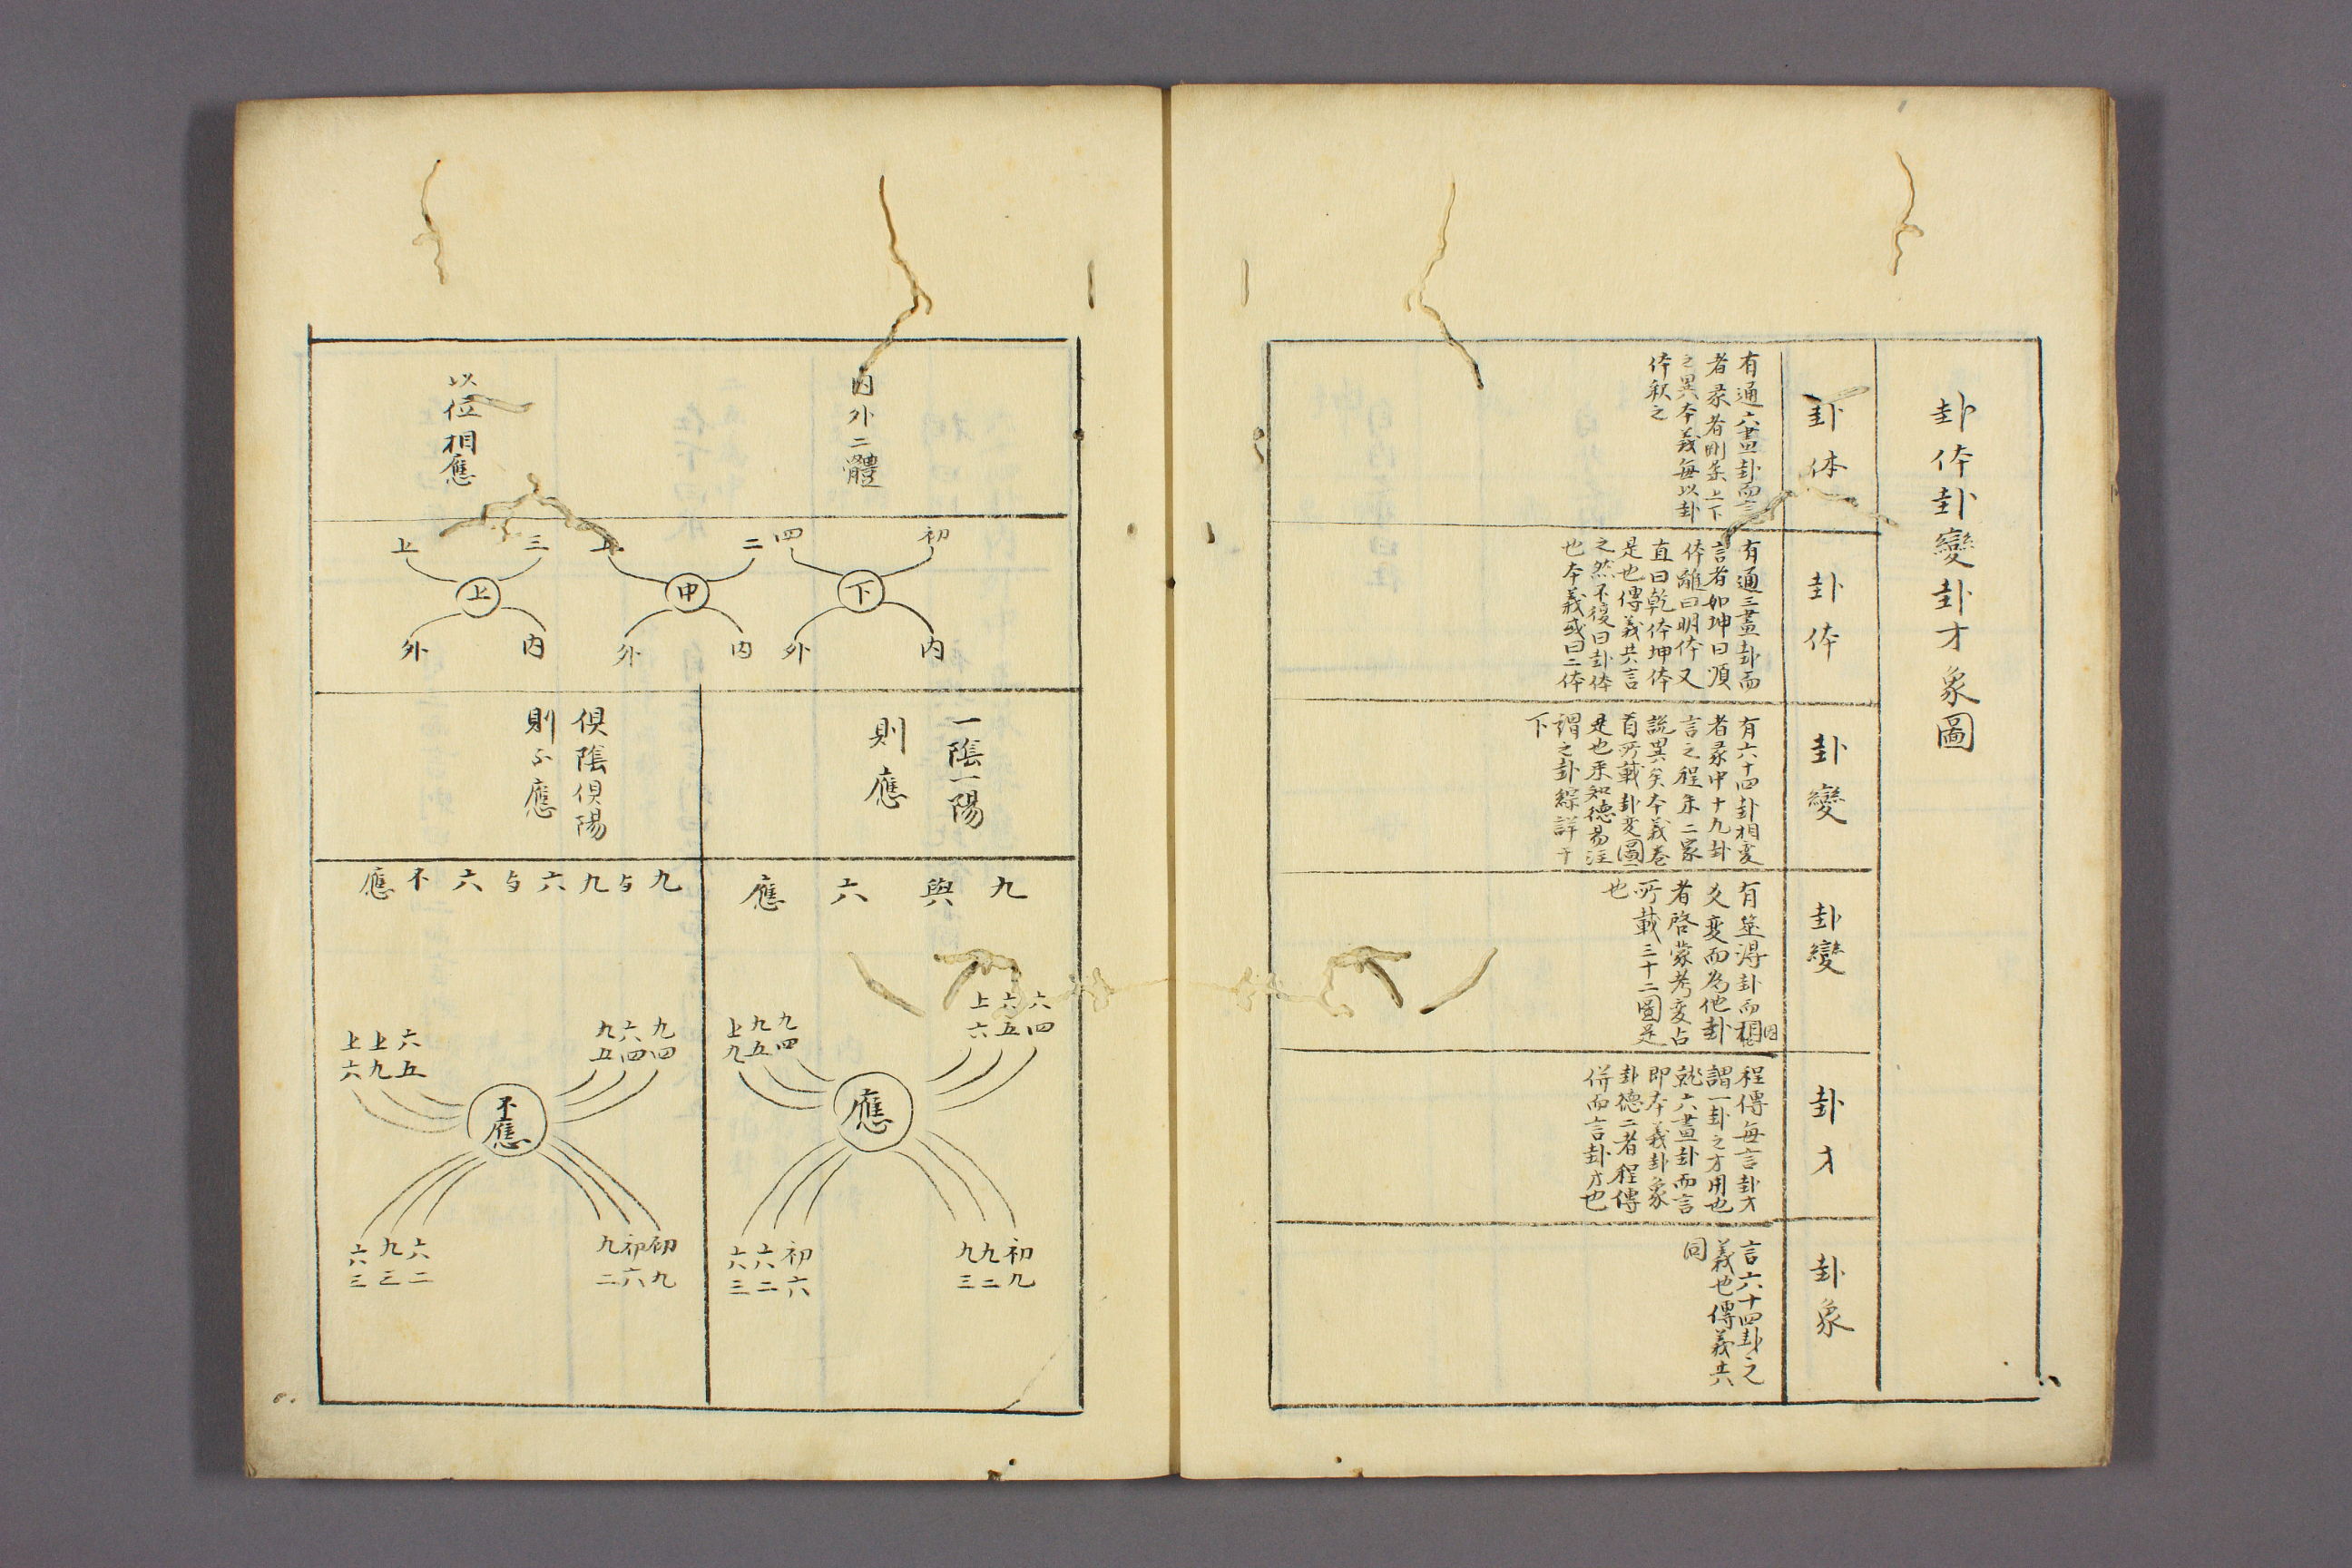 卦体卦變卦才象圖
卦体
有通六畫卦而言
者彖者剛柔上下
之異本義每以卦
体釈之
卦体
有通三畫卦而
言者如坤曰順
体離曰明体又
直曰乾体坤体
是也傳義共言
之然不復曰卦体
也本義或曰二体
卦變
有六十四卦相変
者彖中十九卦
言之程朱二家
説異矣本義巻
首所載卦変圖
是也来知德易注
謂之卦綜詳于
下
卦變
有筮得卦而相因
爻変而為他卦
者啓蒙考変占
所載三十二圖是
也
卦才
程傳每言卦才
謂一卦之才用也
就六畫卦而言
即本義卦象
卦德二者程傳
併而言卦才也
卦象
言六十四卦之
義也傳義共
同
内外二體
以位相應
初 四 下 内 外
二 中 内 外
三 上 上 内 外
一陰一陽
則應
俱陰俱陽
則不應
九與六應
六四 六五 上六
九四 九五 上九
應
初九 九二 九三
初六 六二 六三
九与九六与六不應
九四 六四 九五
六五 上九 上六
不應
初九 初六 九二
六二 九三 六三